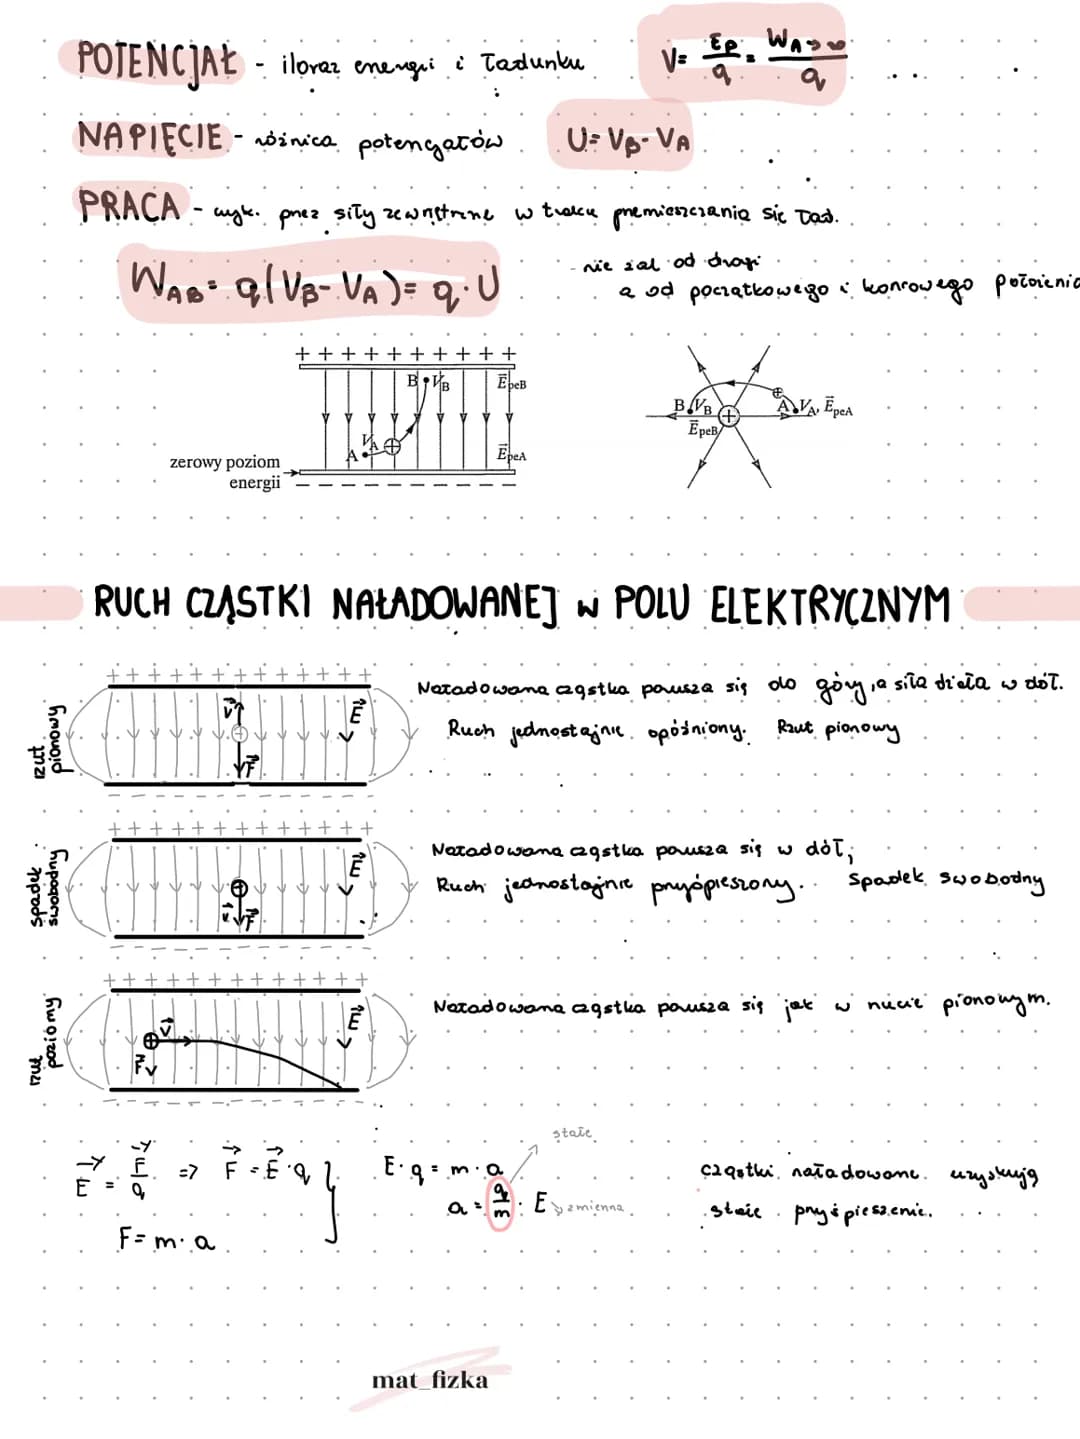 POTENCJAŁ - iloraz energii i ładunku V = Ep/q = WA→∞/q
NAPIĘCIE - różnica potencjałów U = VB - VA
PRACA - wyk. przez siły zewnętrzne w trakcie przemieszczania się ład.
WAB = q(VB - VA) = q·U
- nie zal od drogi
a od początkowego i końcowego położenia
+ + + + + + + + + +
B VB EpeB
VA
A EpeA
zerowy poziom
energii
B VB A VA, EpeA
EpeB
RUCH CZĄSTKI NAŁADOWANEJ w POLU ELEKTRYCZNYM
rzut pionowy
+ + + + + + + + + + + + +
V E
F
Naładowana cząstka porusza się do góry, a siła działa w dół.
Ruch jednostajnie opóźniony. Rzut pionowy
spadek swobodny
+ + + + + + + + + + + + +
E
v F
Naładowana cząstka porusza się w dół,
Ruch jednostajnie przyśpieszony. Spadek swobodny
rzut poziomy
+ + + + + + + + + + + + +
V E
F
Naładowana cząstka porusza się jak w rzucie pionowym.
E = F/q => F = E·q
F = m·a
E·q = m·a
stałe
a = q/m · E zmienna
cząstki naładowane uzyskują
stałe przyśpieszenie.
mat_fizka